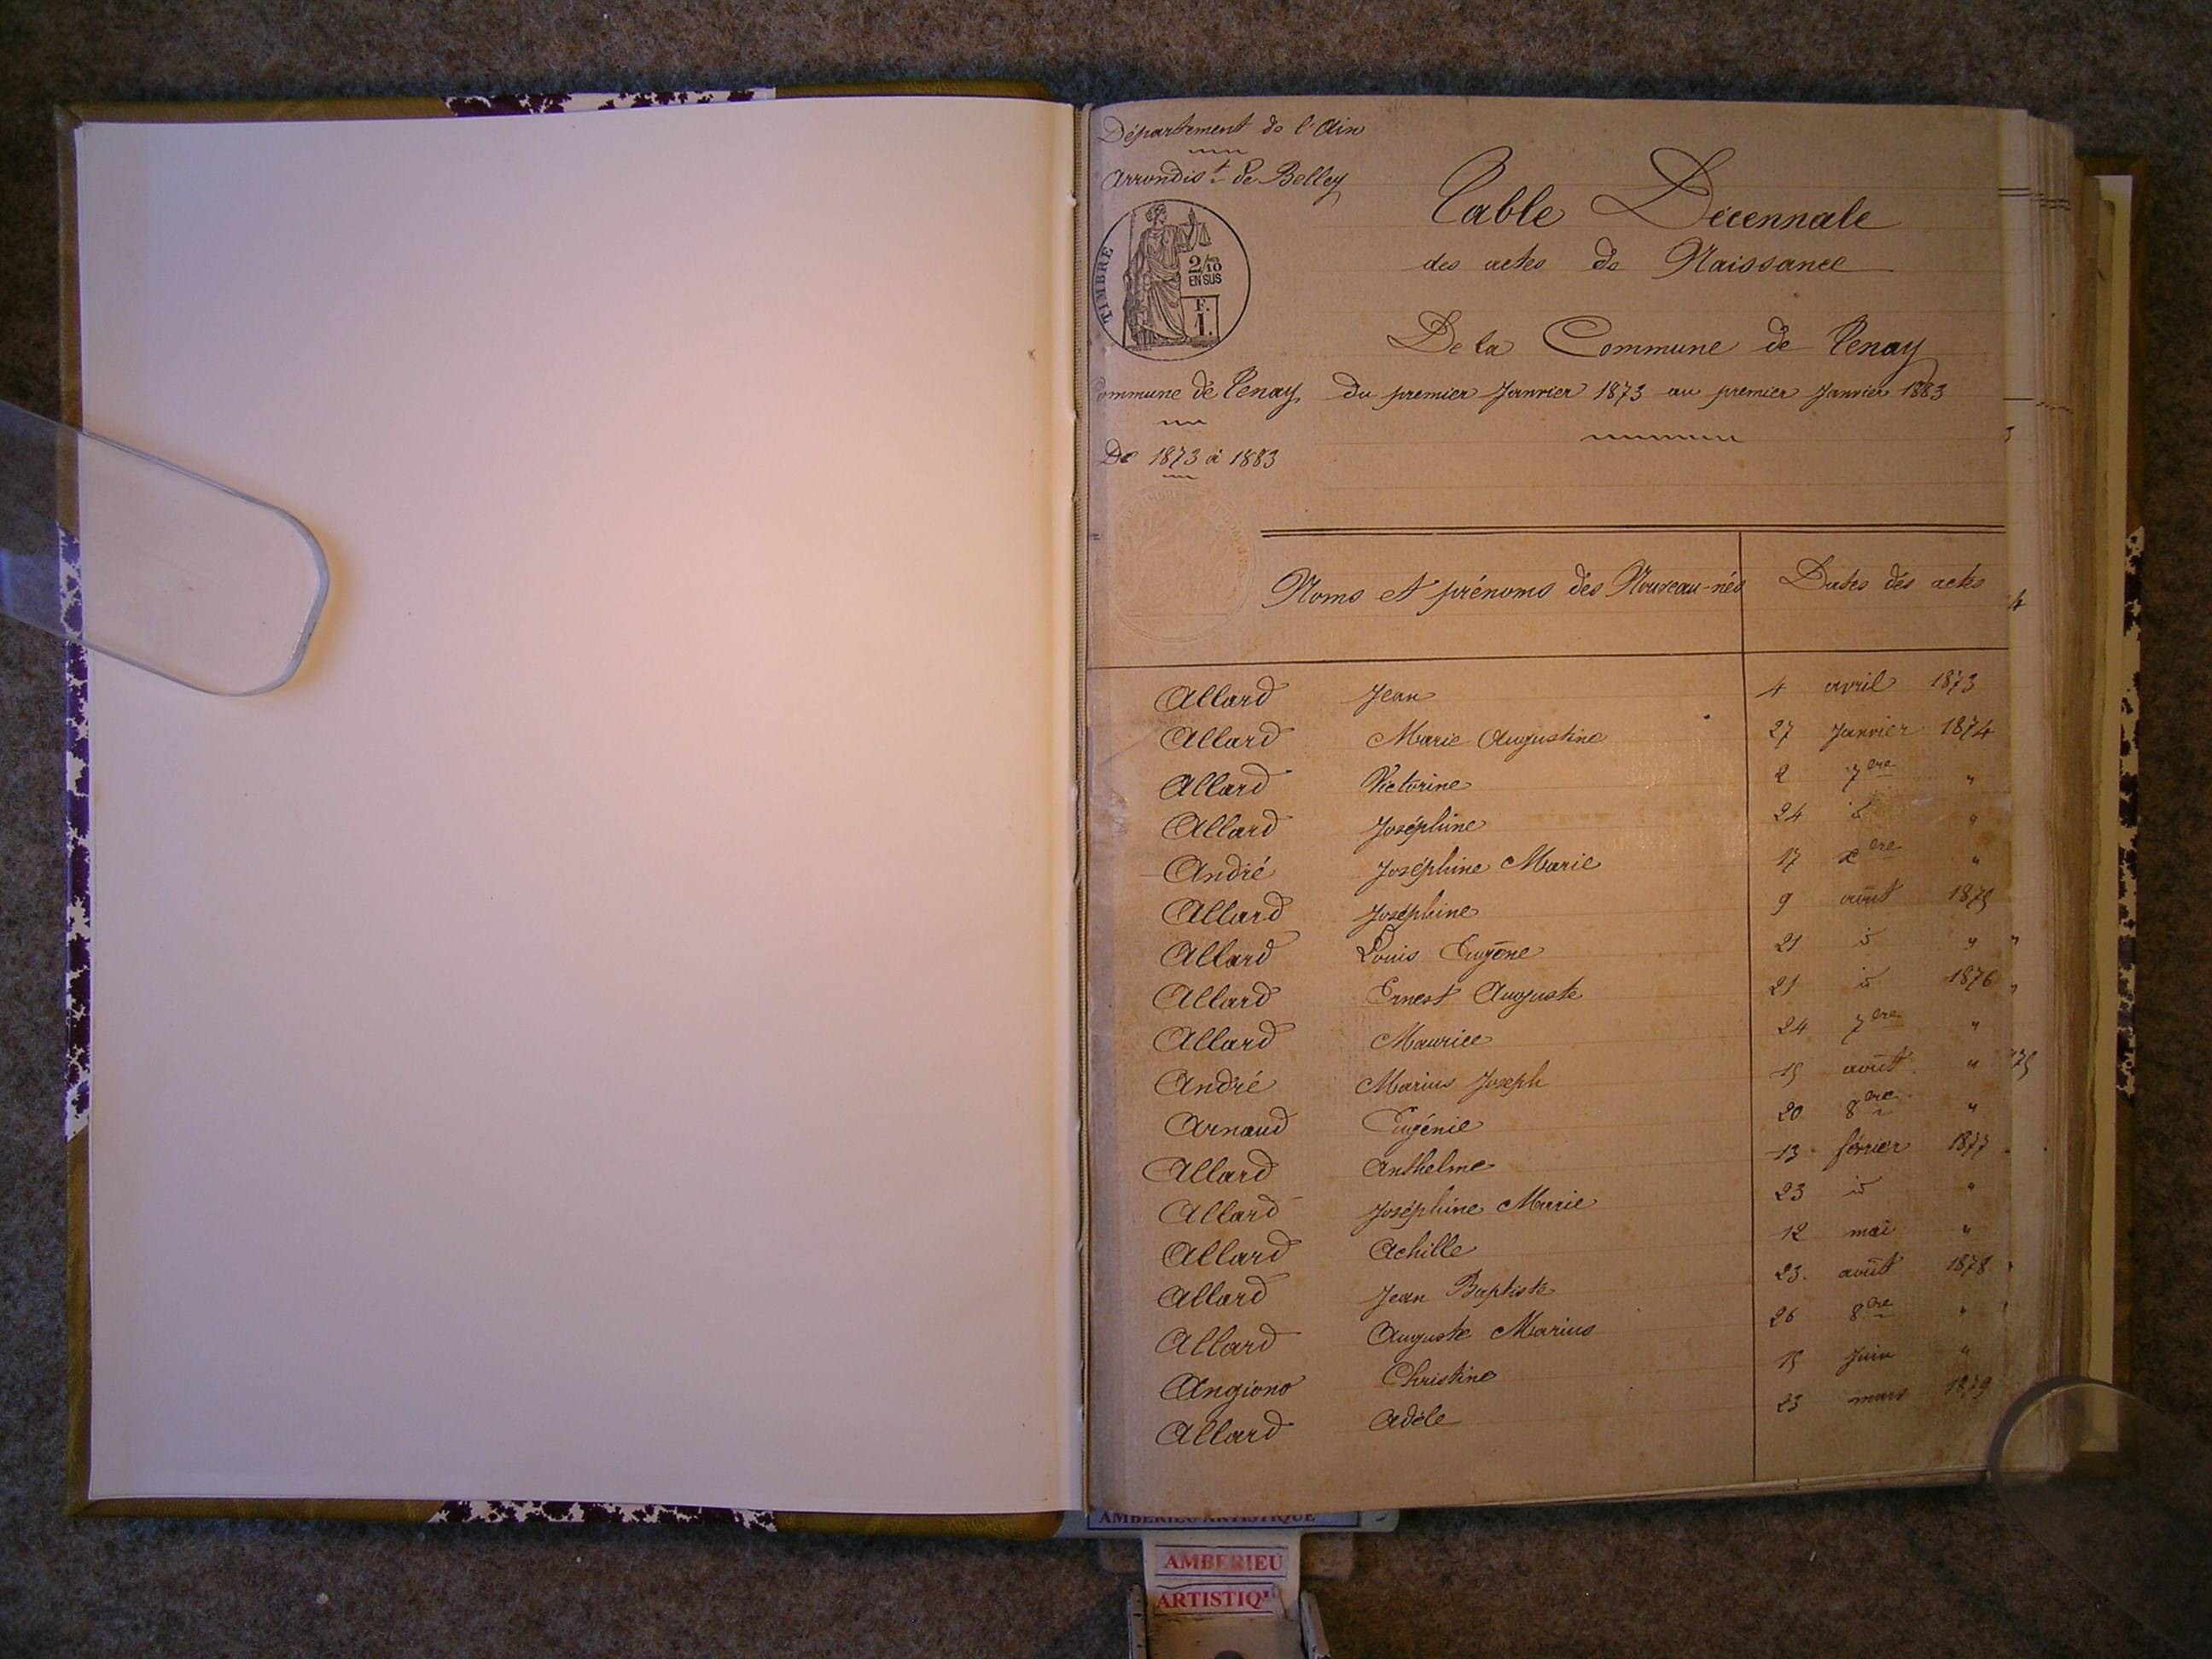 Département de l'Ain
Arrondist de Belley
TIMBRE
2/10
EN SUS
F.
1.
Commune de Tenay
De 1873 à 1883
Table Décennale
des actes de Naissance
De la Commune de Tenay
Du premier Janvier 1873 au premier Janvier 1883
Noms et prénoms des Nouveau-nés Dates des actes
Allard Jean 4 avril 1873
Allard Marie Augustine 27 Janvier 1874
Allard Victorine 2 7bre "
Allard Joséphine 24 id "
André Joséphine Marie 17 xbre "
Allard Joséphine 9 août 1875
Allard Louis Eugène 21 id "
Allard Ernest Auguste 21 id 1876
Allard Maurice 24 7bre "
André Marius Joseph 15 août "
Arnaud Eugénie 20 8bre "
Allard Anthelme 13 février 1877
Allard Joséphine Marie 23 id "
Allard Achille 12 mai "
Allard Jean Baptiste 23 août 1878
Allard Auguste Marius 26 8bre "
Angiono Christine 15 Juin "
Allard Adèle 23 mars 1879
AMBERIEU ARTISTIQUE
AMBERIEU
ARTISTIQ